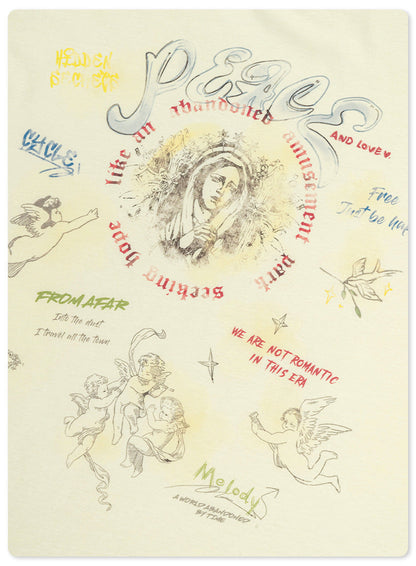 HIDDEN
SECRETS
PEACE
AND LOVE
like an abandoned amusement park seeking hope
Free
Just be
FROM AFAR
Into the dust
I travel all the town
WE ARE NOT ROMANTIC
IN THIS ERA
Melody
A WORLD ABANDONED
BY TIME